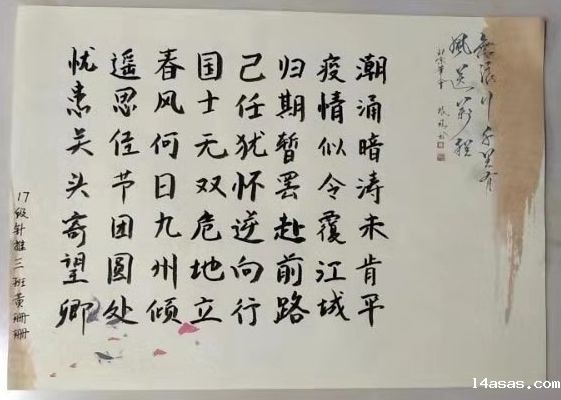 风送万程
潮涌暗涛未肯平
疫情似令覆江城
归期暂罢赴前路
己任犹怀逆向行
国士无双危地立
春风何日九州倾
遥思佳节团圆处
忧患关头寄望卿
17级针推三班黄珊珊
14asas.com